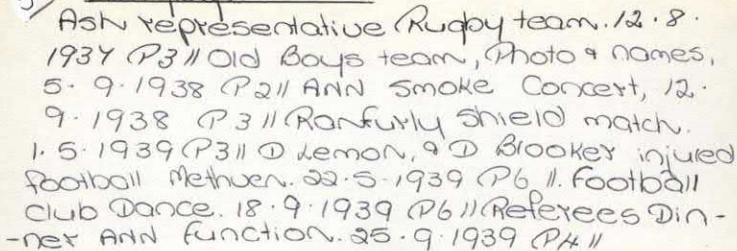 Ash representative Rugby team. 12.8.
1937 P3 // Old Boys team, Photo & names,
5.9.1938 P2 // ANN Smoke Concert, 12.
9.1938 P3 // Ranfurly Shield match.
1.5.1939 P3 // D Lemon, & D Brooker injured
football Methven. 22.5.1939 P6 //. Football
club Dance. 18.9.1939 P6 // Referees Din-
-ner ANN function. 25.9.1939 P4 //